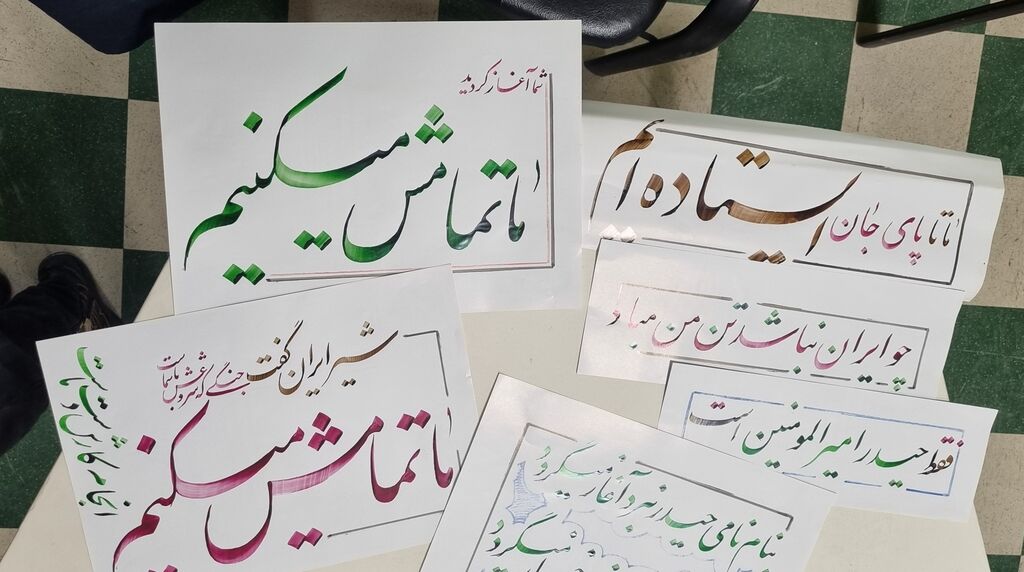 شما آغاز کردید
ما تمامش میکنیم
ما تا پای جان
ایستاده ایم
چو ایران نباشد تن من مباد
فقط حیدر امیرالمومنین است
شیر ایران گفت
جنگی که شروعش با شماست
ما تمامش میکنیم
بنام نامی حیدر نبرد آغاز میگردد
میگردد